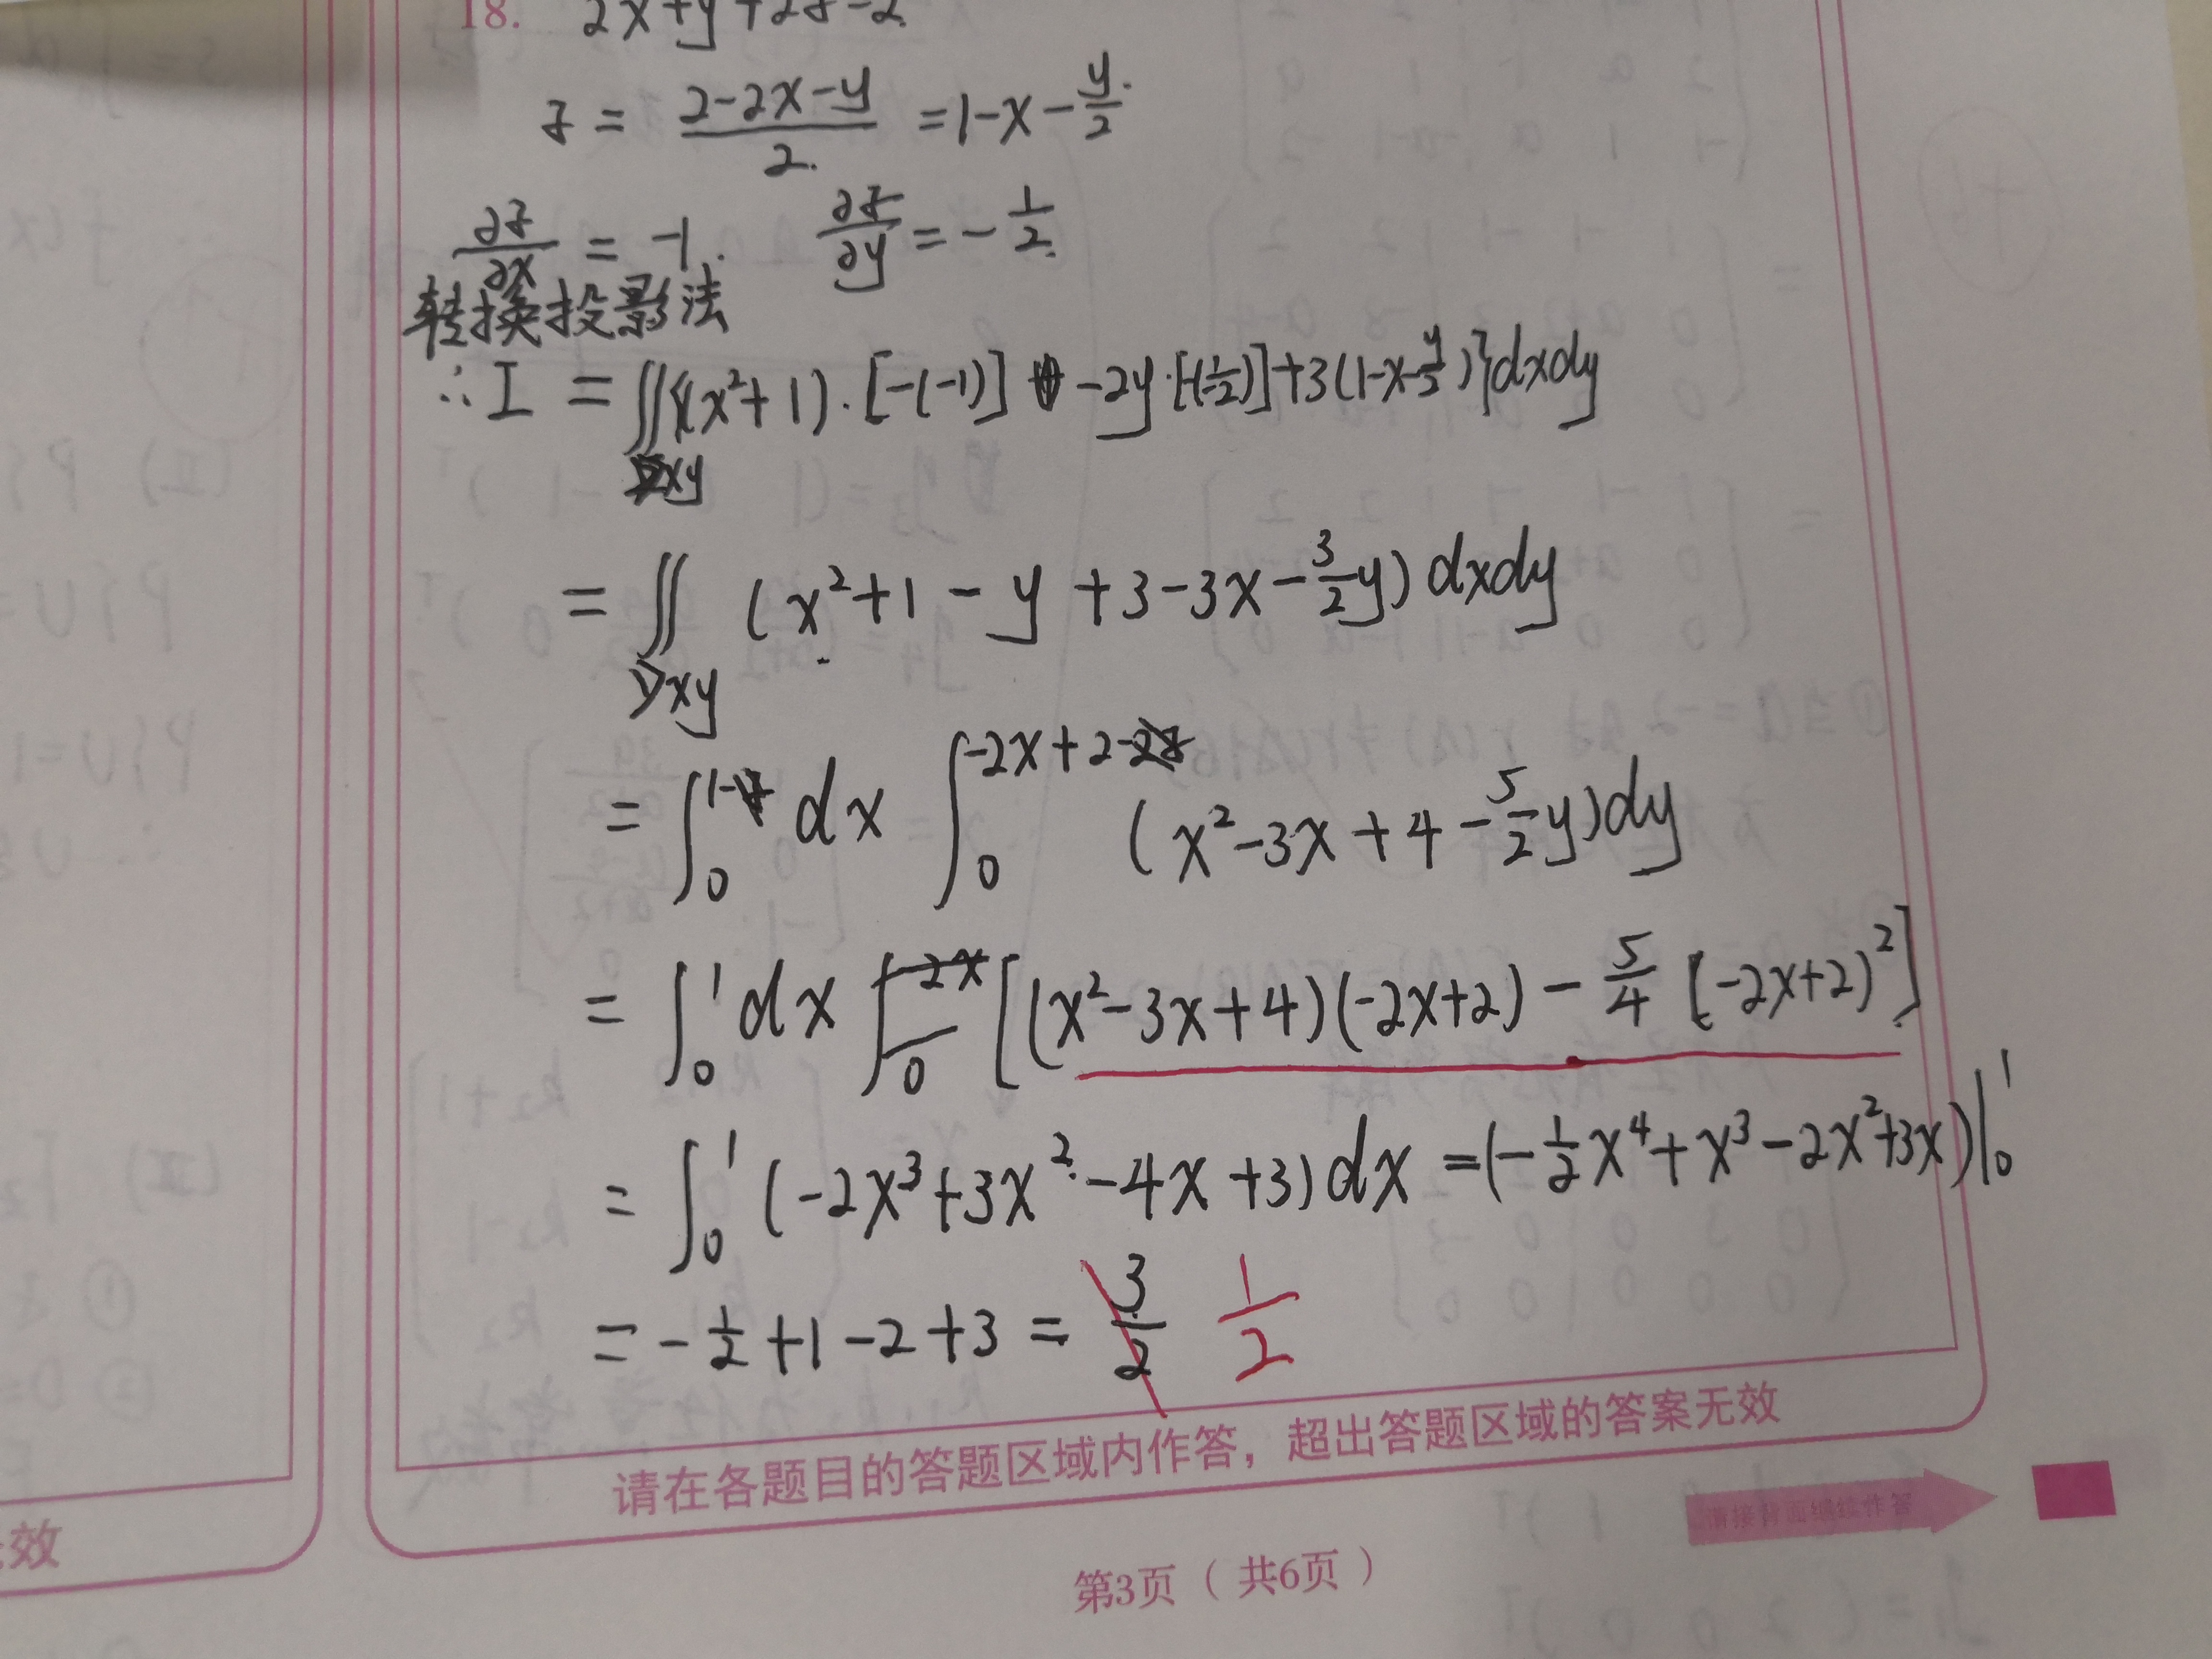 18. 2x+y+2z=2
z = \frac{2-2x-y}{2} = 1-x-\frac{y}{2}
\frac{∂z}{∂x} = -1. \frac{∂z}{∂y} = -\frac{1}{2}
转换投影法
∴ I = ∬_{Dxy} {(x²+1)·[-(-1)] -2y·[-(-\frac{1}{2})]+3(1-x-\frac{y}{2})}dxdy
= ∬_{Dxy} (x²+1-y+3-3x-\frac{3}{2}y)dxdy
= ∫_0^1 dx ∫_0^{-2x+2} (x²-3x+4-\frac{5}{2}y)dy
= ∫_0^1 dx [(x²-3x+4)(-2x+2)-\frac{5}{4}(-2x+2)²]
= ∫_0^1 (-2x³+3x²-4x+3)dx = (-\frac{1}{2}x⁴+x³-2x²+3x)|_0^1
= -\frac{1}{2}+1-2+3 = \frac{3}{2} \frac{1}{2}
请在各题目的答题区域内作答，超出答题区域的答案无效
请接背面继续作答
效
第3页（共6页）